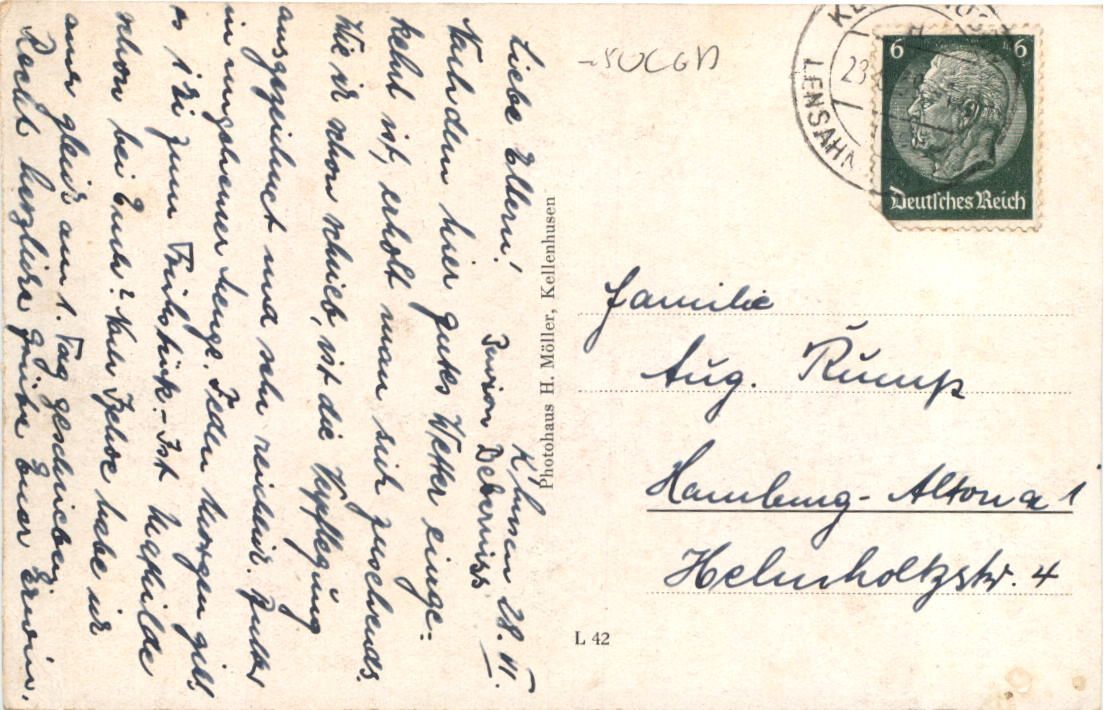 K'husen 28. VI.
Pension Bederniss
Liebe Eltern!
Nachdem hier gutes Wetter einge-
kehrt ist, erholt man sich zusehends.
Wie ich schon schrieb, ist die Verpflegung
ausgezeichnet und sehr reichlich. Butter
in ungeheurer Menge. Jeden Morgen gibt
es 1 Ei zum Frühstück. - Ist Mechthilde
schon bei Euch? Nach Jehoe habe ich
auch gleich am 1. Tag geschrieben
Recht herzliche Grüße Euer Erwin.
Photohaus H. Möller, Kellenhusen
L 42
6 6
Deutsches Reich
LENSAHN
Familie
Aug. Rumpf
Hamburg-Altona 1
Helmholtzstr. 4